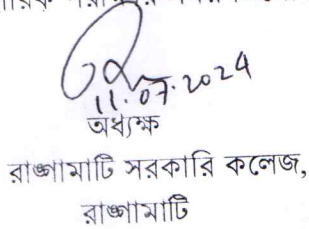 11.07.2024
অধ্যক্ষ
রাঙ্গামাটি সরকারি কলেজ,
রাঙ্গামাটি